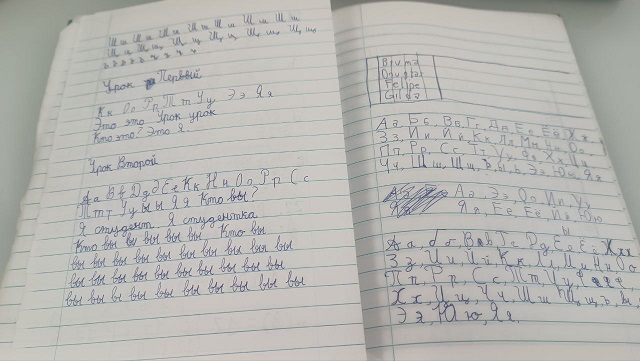 Шш Шш Шш Шш Шш Шш Шш
Щщ Щщ Щщ Щщ Щщ Щщ Щщ
ъ ъ ъ ъ ъ
Урок Первый
Кк Оо Рр Тт Уу Ээ Яя
Это это Урок урок
Кто это? Это я.
Урок Второй
Аа Вв Дд Ее Кк Нн Оо Рр Сс
Тт Уу ы Яя Кто вы?
Я студент. Я студентка
Кто вы вы вы вы вы Кто вы
вы вы вы вы вы вы вы вы вы вы
вы вы вы вы вы вы вы вы вы вы
вы вы вы вы вы вы вы вы вы вы
Felipe
Аа, Бб, Вв, Гг, Дд, Ее, Ёё, Жж,
Зз, Ии, Йй, Кк, Лл, Мм, Нн, Оо,
Пп, Рр, Сс, Тт, Уу, Фф, Хх, Цц,
Чч, Шш, Щщ, Ъъ, ы, ь, Ээ, Юю, Яя
Аа, Ээ, Оо, Ии, Уу
Яя, Её, Её, Ии, Юю
ы
Аа, Бб, Вв, Гг, Дд, Ее, Ёё, Жж
Зз, Ии, Йй, Кк, Лл, Мм, Нн, Оо
Пп, Рр, Сс, Тт, Уу,
Хх, Цц, Чч, Шш, Щщ, ъ, ы,
Ээ, Юю, Яя.